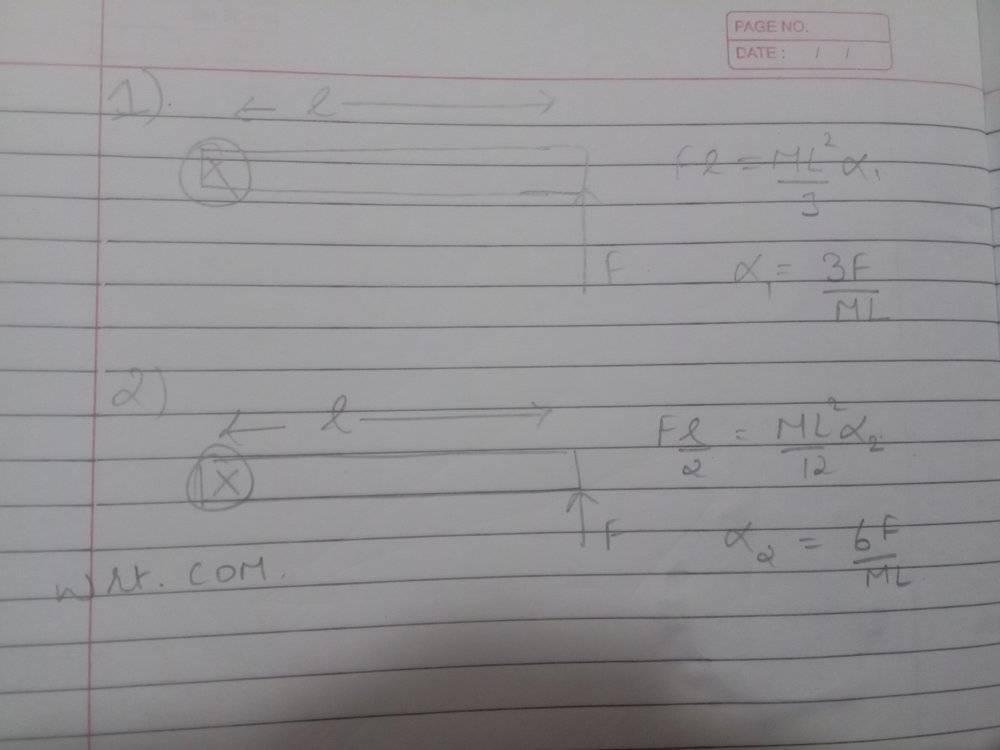 PAGE NO.
DATE : / /
1).
← l →
X
Fl = ML²/3 α₁
F
α₁ = 3F/ML
2)
← l →
X
Fl/2 = ML²/12 α₂
F
α₂ = 6F/ML
w rt. COM.